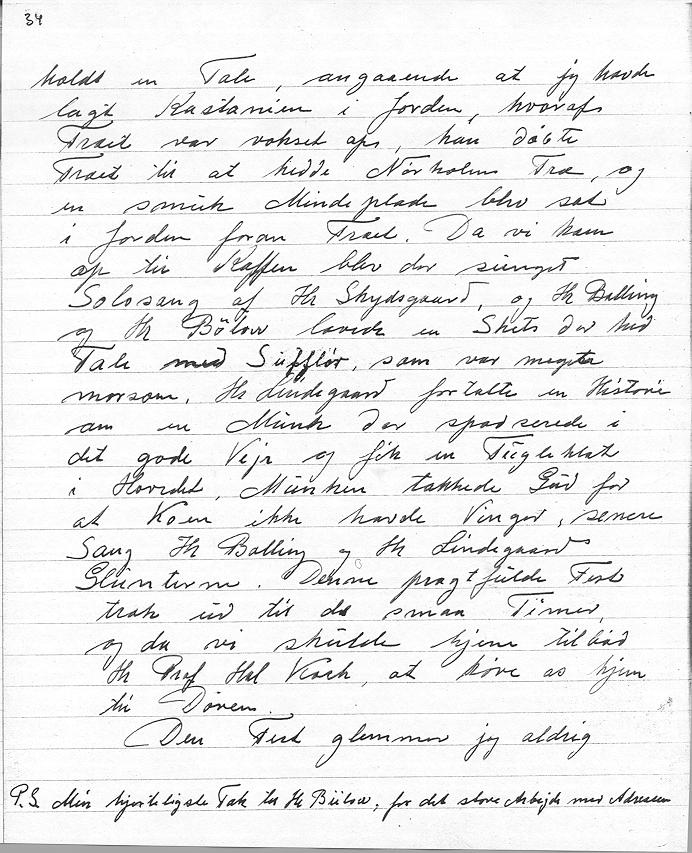 34
holdt en Tale, angaaende at jeg havde
lagt Kastanien i Jorden, hvoraf
Træet var vokset op, han døbte
Træet til at hedde Nørholms Træ, og
en smuk Mindeplade blev sat
i Jorden foran Træet. Da vi kom
op til Kaffen blev der sunget
Solosang af Hr Skydsgaard, og Hr Balling
og Hr Bülow lavede en Skets der hed
Tale med Sufflør, som var meget
morsom. Hr Lindegaard fortalte en Historie
om en Munk der spadserede i
det gode Vejr og fik en Fugleklat
i Hovedet, Munken takkede Gud for
at Koen ikke havde Vinger, senere
Sang Hr Balling og Hr Lindegaard
Glunterne. Denne pragtfulde Fest
trak ud til de smaa Timer,
og da vi skulde hjem tilbød
Hr Prof Hal Koch, at køre os hjem
til Døren.
Den Fest glemmer jeg aldrig
P.S. Min hjerteligste Tak til Hr Bülow, for det store Arbejde med Adressen